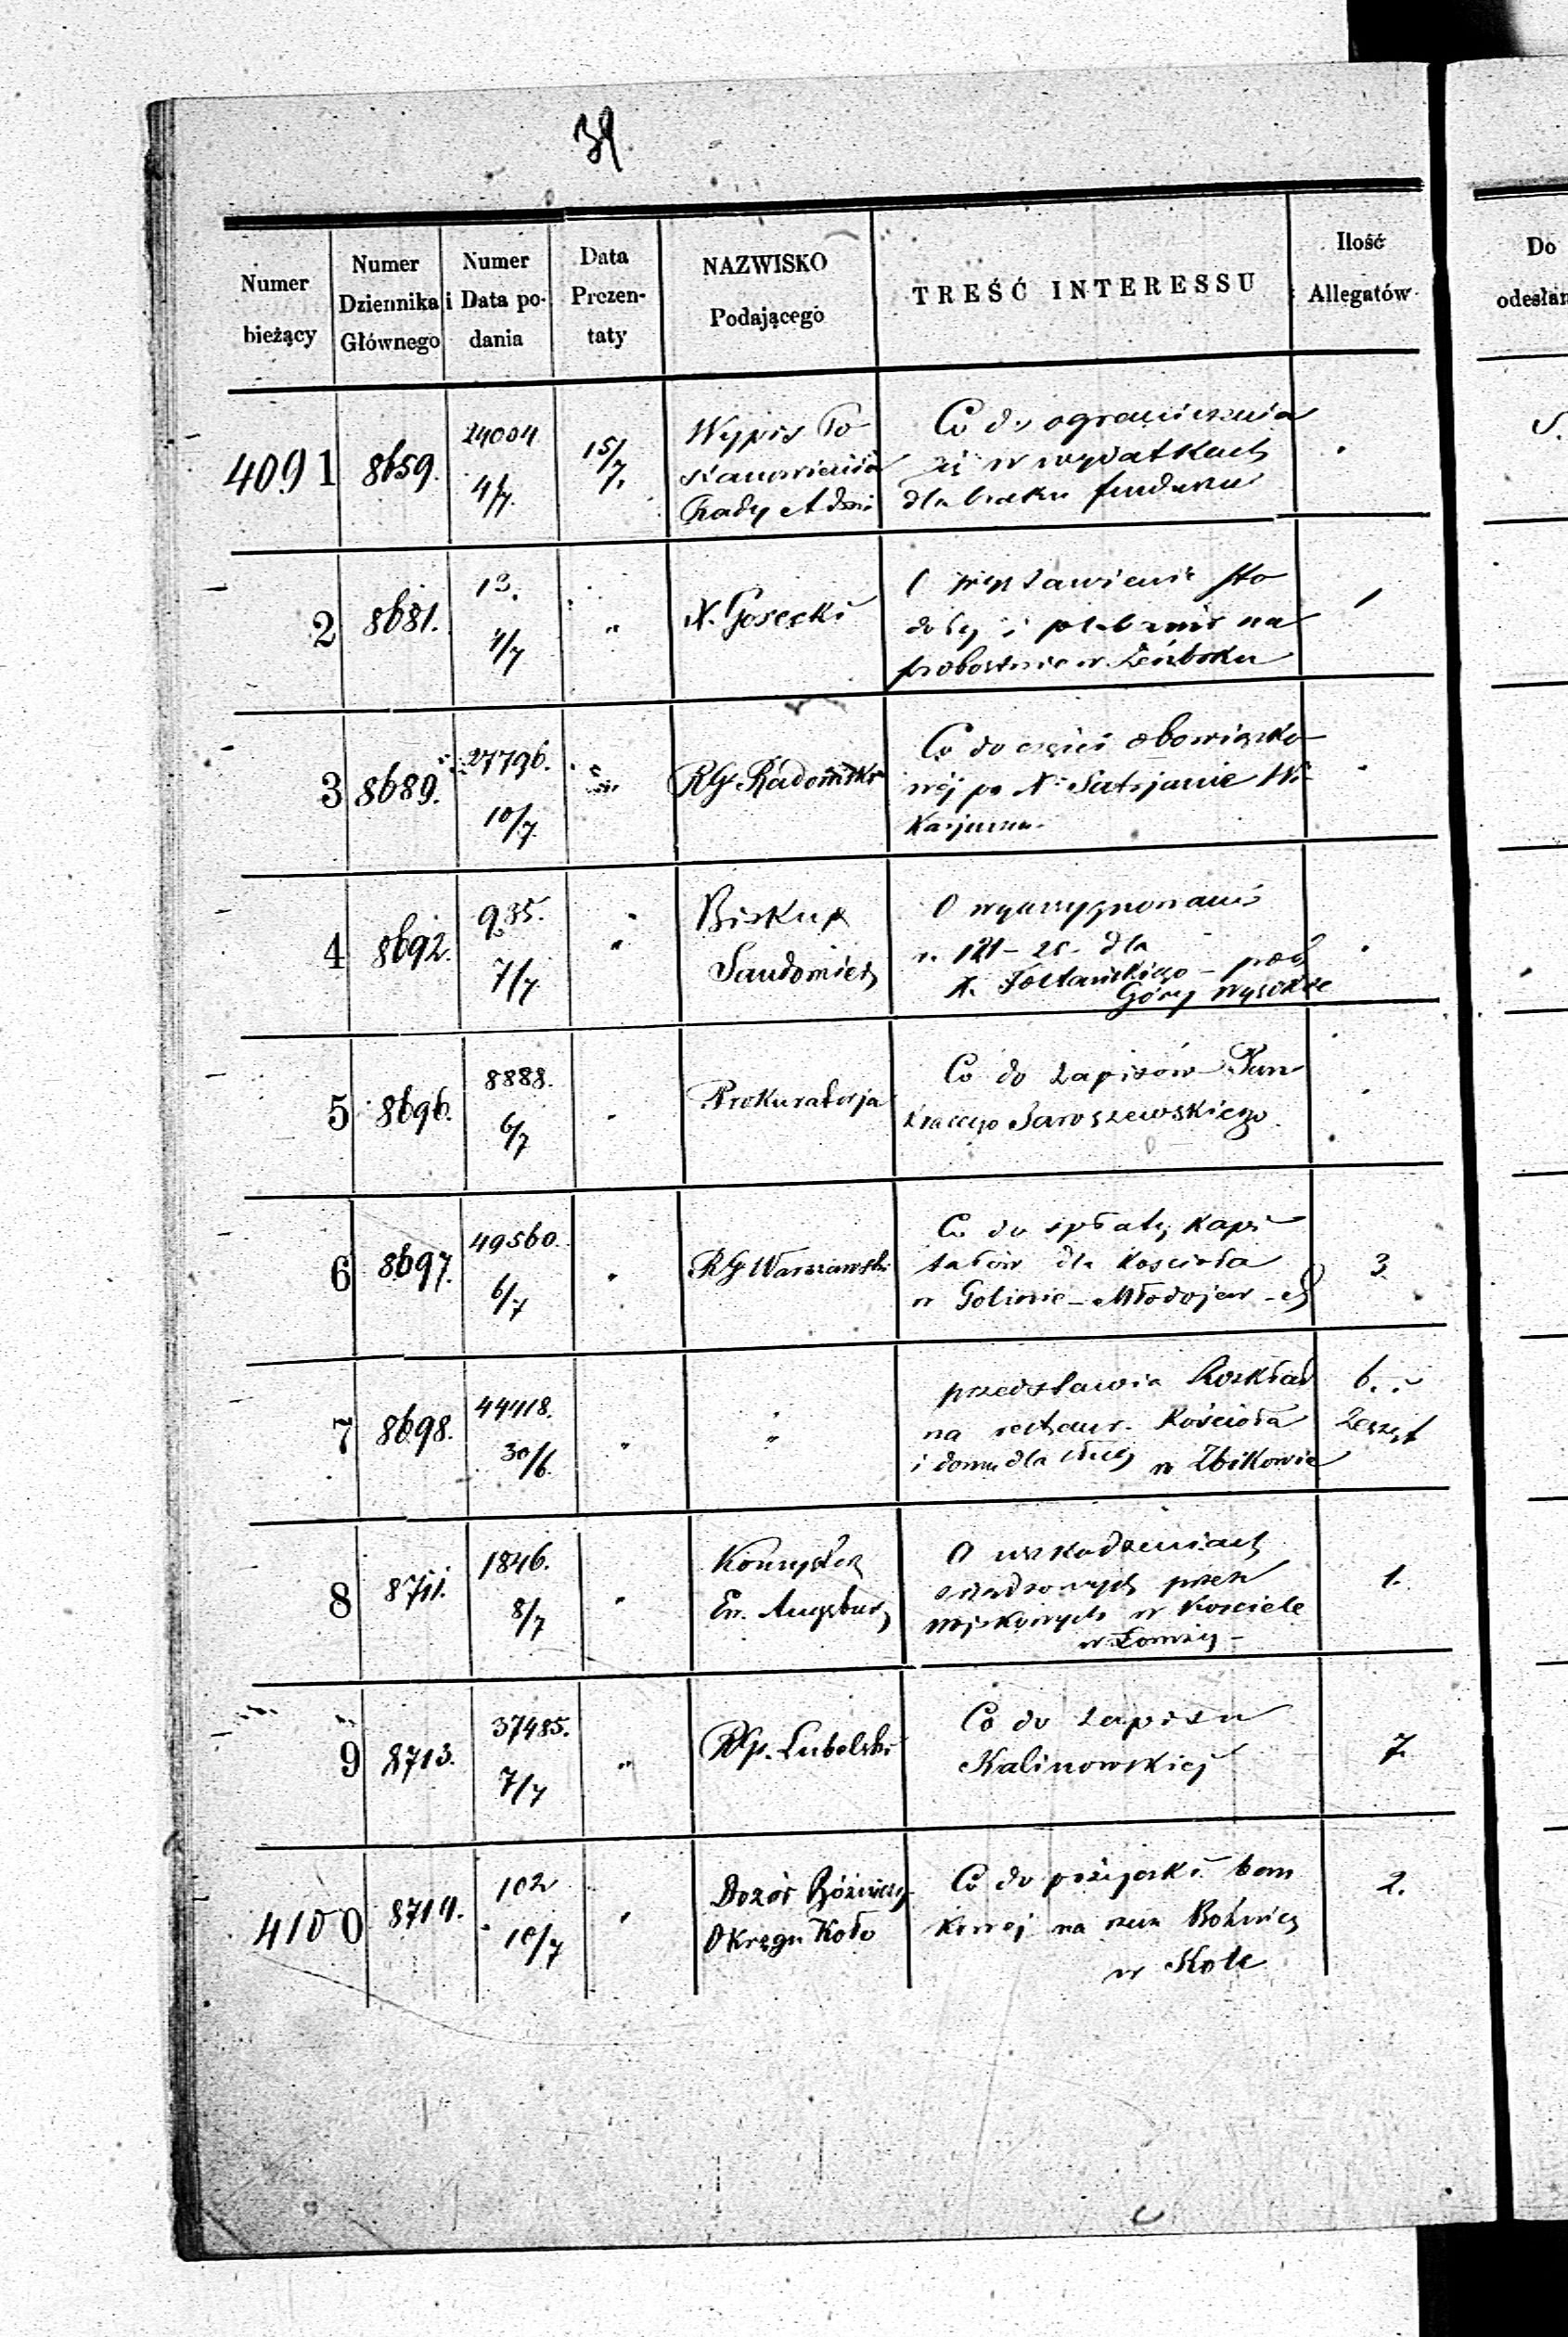 39
Numer bieżący
Numer Dziennika Głównego
Numer i Data podania
Data Prezentaty
NAZWISKO Podającego
TREŚĆ INTERESSU
Ilość Allegatów
Do odesłan
4091 8659. 24004 4/7. 15/7.
Wypis Po
stanowienia
Rady Adm:
Co do ograniczenia
się w wydatkach
dla braku funduszu
2 8681. 13. 4/7 "
X. Gosecki
O wystawienie sto
doły i plebanii na
probostwie w
1
3 8689. 27796. 10/7 "
RG Radomski
Co do części obowiązko
wéj po X.
4 8692. 935. 7/7 "
Biskup
Sandomier
O wyassygnowanie
r. 121 - 20 - dla
X. - prob
Góry Wysokie
5 8696. 8888. 6/7 "
Prokuratorja
Co do zapisów Pan
kracego Jaroszewskiego.
6 8697. 49560. 6/7 "
RG Warszawski
Co do spłaty kapi
tałów dla Kościoła
w Golinie - Młodojew -
3
7 8698. 44418. 30/6. " "
przedstawia Rozkład
na restaur. Kościoła
i domu dla służby w Zbikowie
6.
Zeszyt
8 8711. 1846. 8/7 "
Konsystorz
Ew. Augsburg
O uszkodzeniach
zrządzonych przez
wojskowych w Kościele
w Łomży -
1.
9 8713. 37485. 7/7 "
RG. Lubelski
Co do zapisu
Kalinowskiej
7.
4100 8714. 102 10/7 "
Dozór Bóźniczy
Okręgu Koło
Co do pożyczki ban
kowej na rzecz Bóżnicy
w Kole
2.